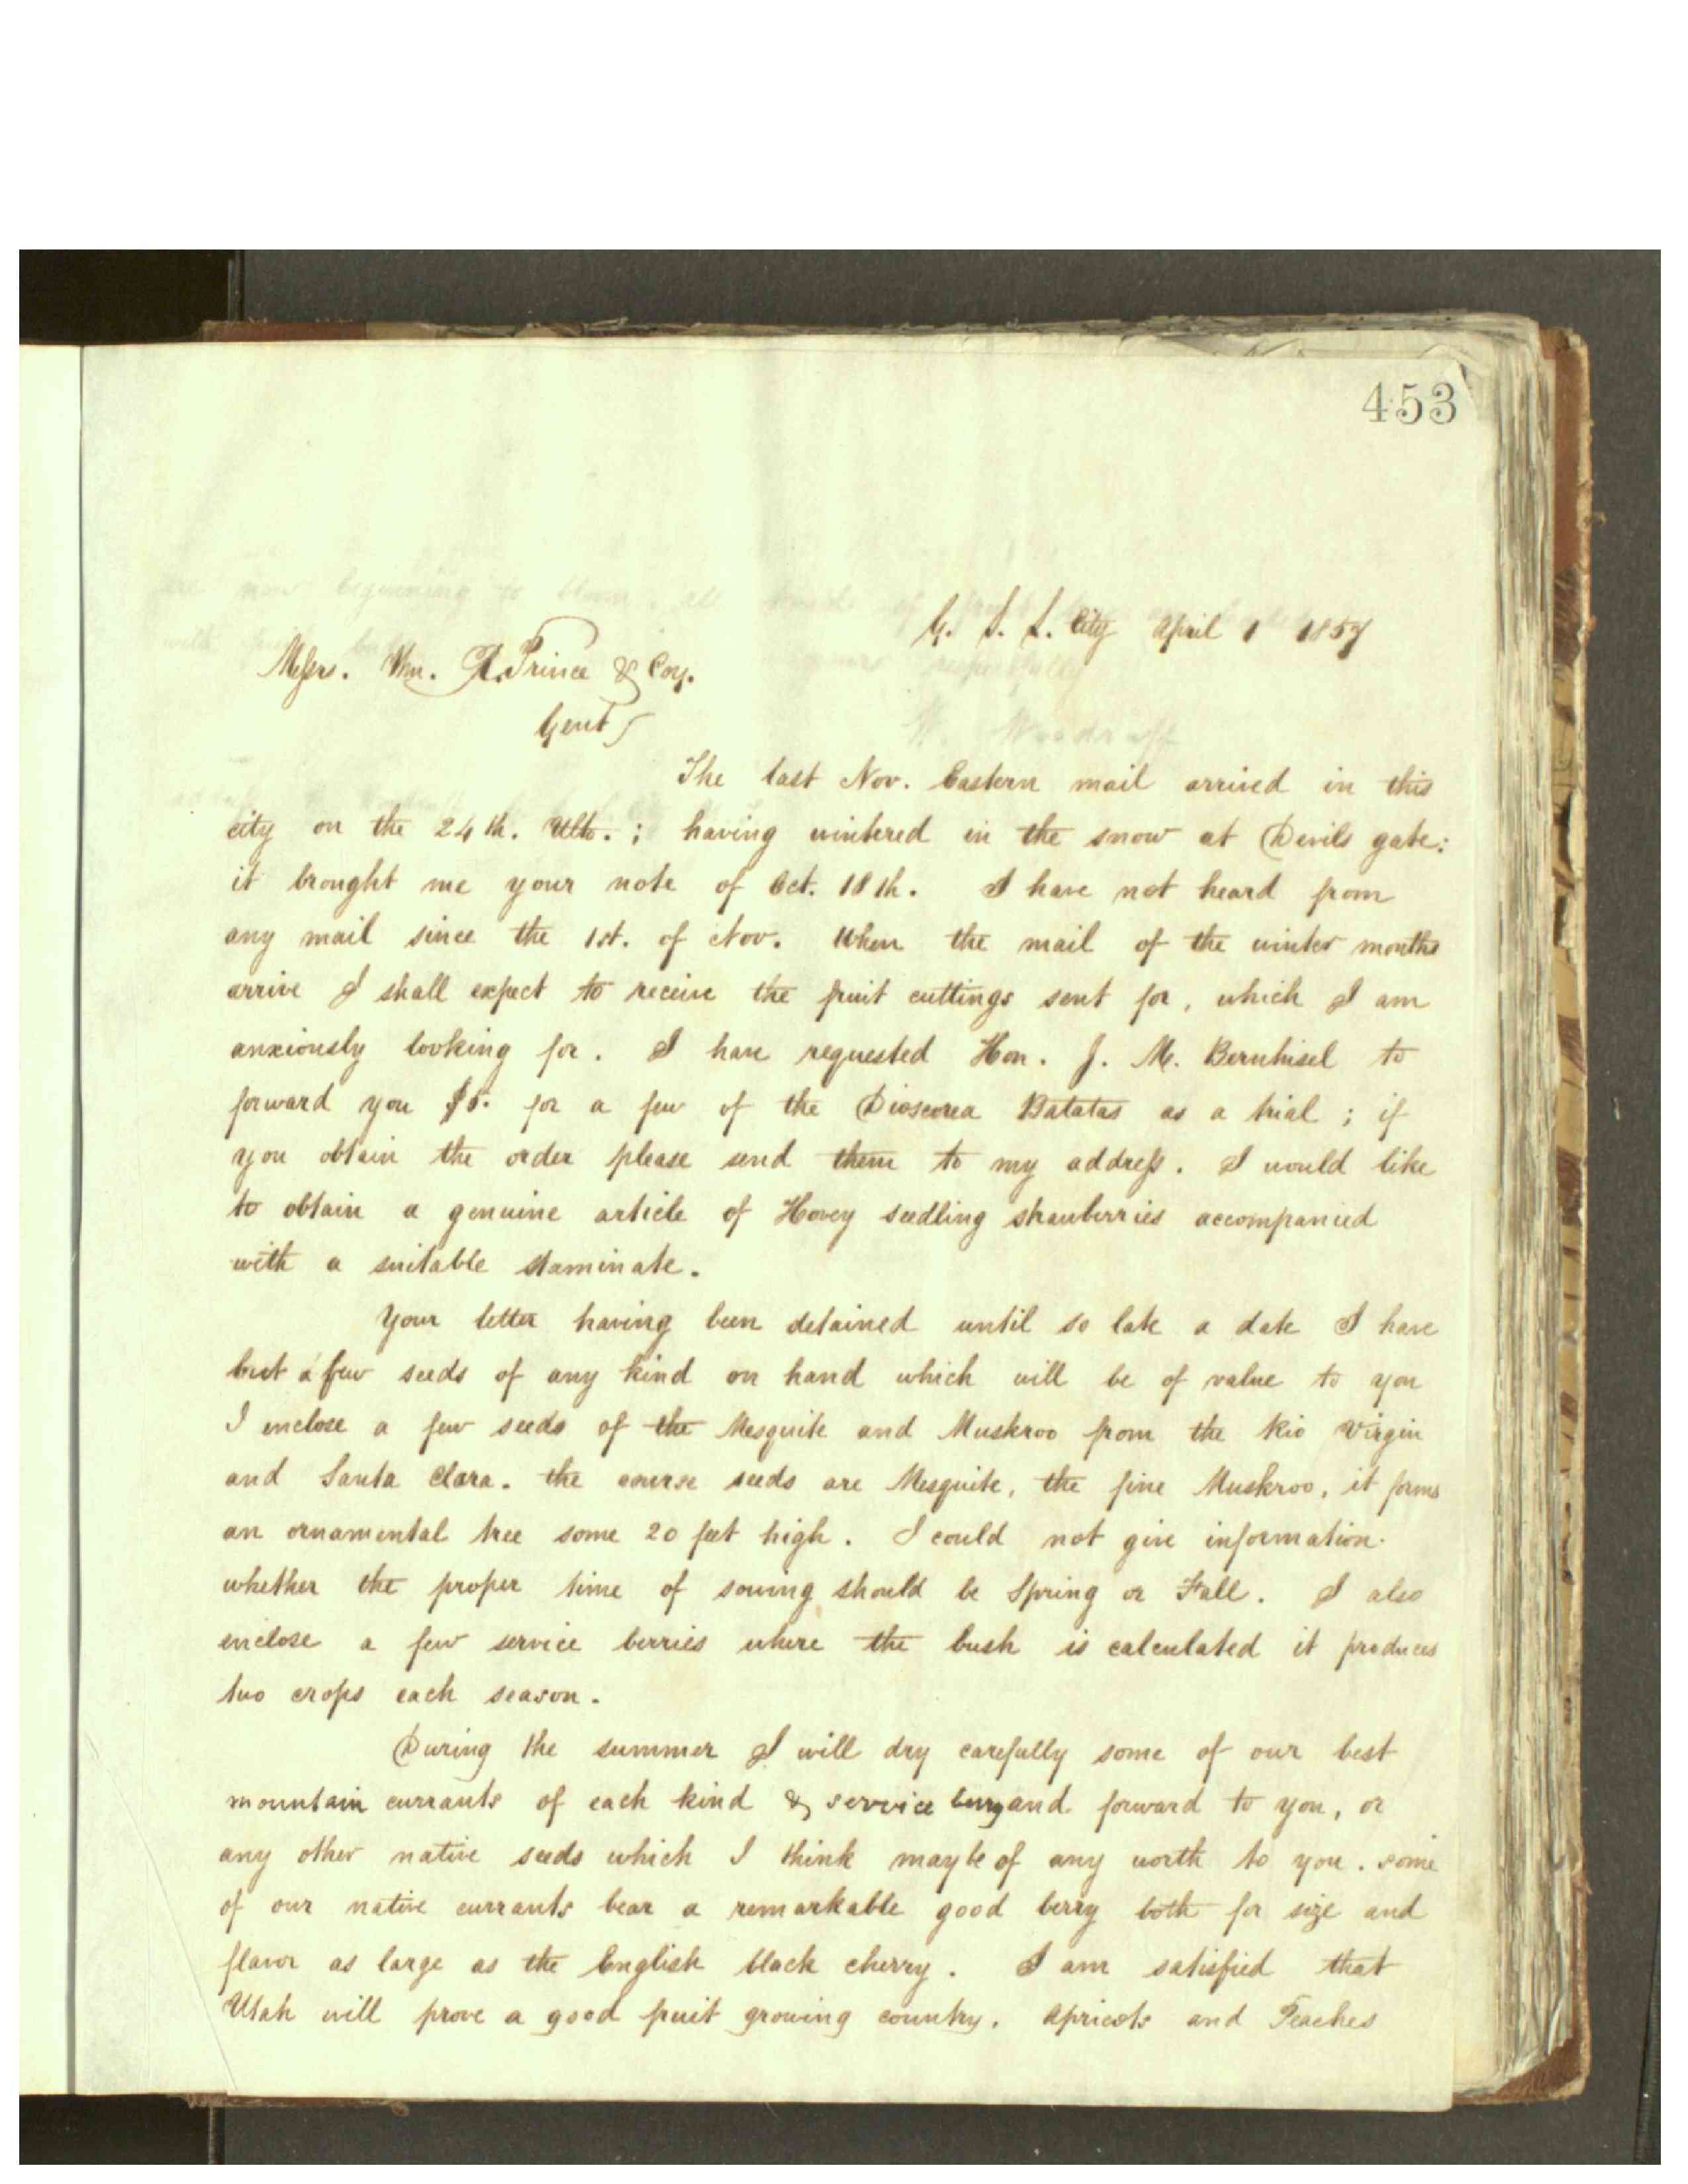 453
G. S. L. City April 1 1857
Messrs. Wm. R. Prince & Coy.
Gents
The last Nov. Eastern mail arrived in this
city on the 24th. Ulto. ; having wintered in the snow at Devils gate:
it brought me your note of Oct. 18th. I have not heard from
any mail since the 1st. of Nov. When the mail of the winter months
arrive I shall expect to receive the fruit cuttings sent for, which I am
anxiously looking for. I have requested Hon. J. M. Bernhisel to
forward you $5. for a few of the Dioscorea Batatas as a trial ; if
you obtain the order please send them to my address. I would like
to obtain a genuine article of Hovey seedling strauberries accompanied
with a suitable staminate.
Your letter having been detained until so late a date I have
but a few seeds of any kind on hand which will be of value to you
I enclose a few seeds of the Mesquite and Muskroo from the Rio Virgin
and Santa Clara. the course seeds are Mesquite, the fine Muskroo, it forms
an ornamental tree some 20 feet high. I could not give information.
whether the proper time of sowing should be Spring or Fall. I also
enclose a few service berries where the bush is calculated it produces
two crops each season.
During the summer I will dry carefully some of our best
mountain currants of each kind & service berry and forward to you, or
any other native seeds which I think may be of any worth to you. some
of our native currants bear a remarkable good berry both for size and
flavor as large as the English black cherry. I am satisfied that
Utah will prove a good fruit growing country. Apricots and Peaches